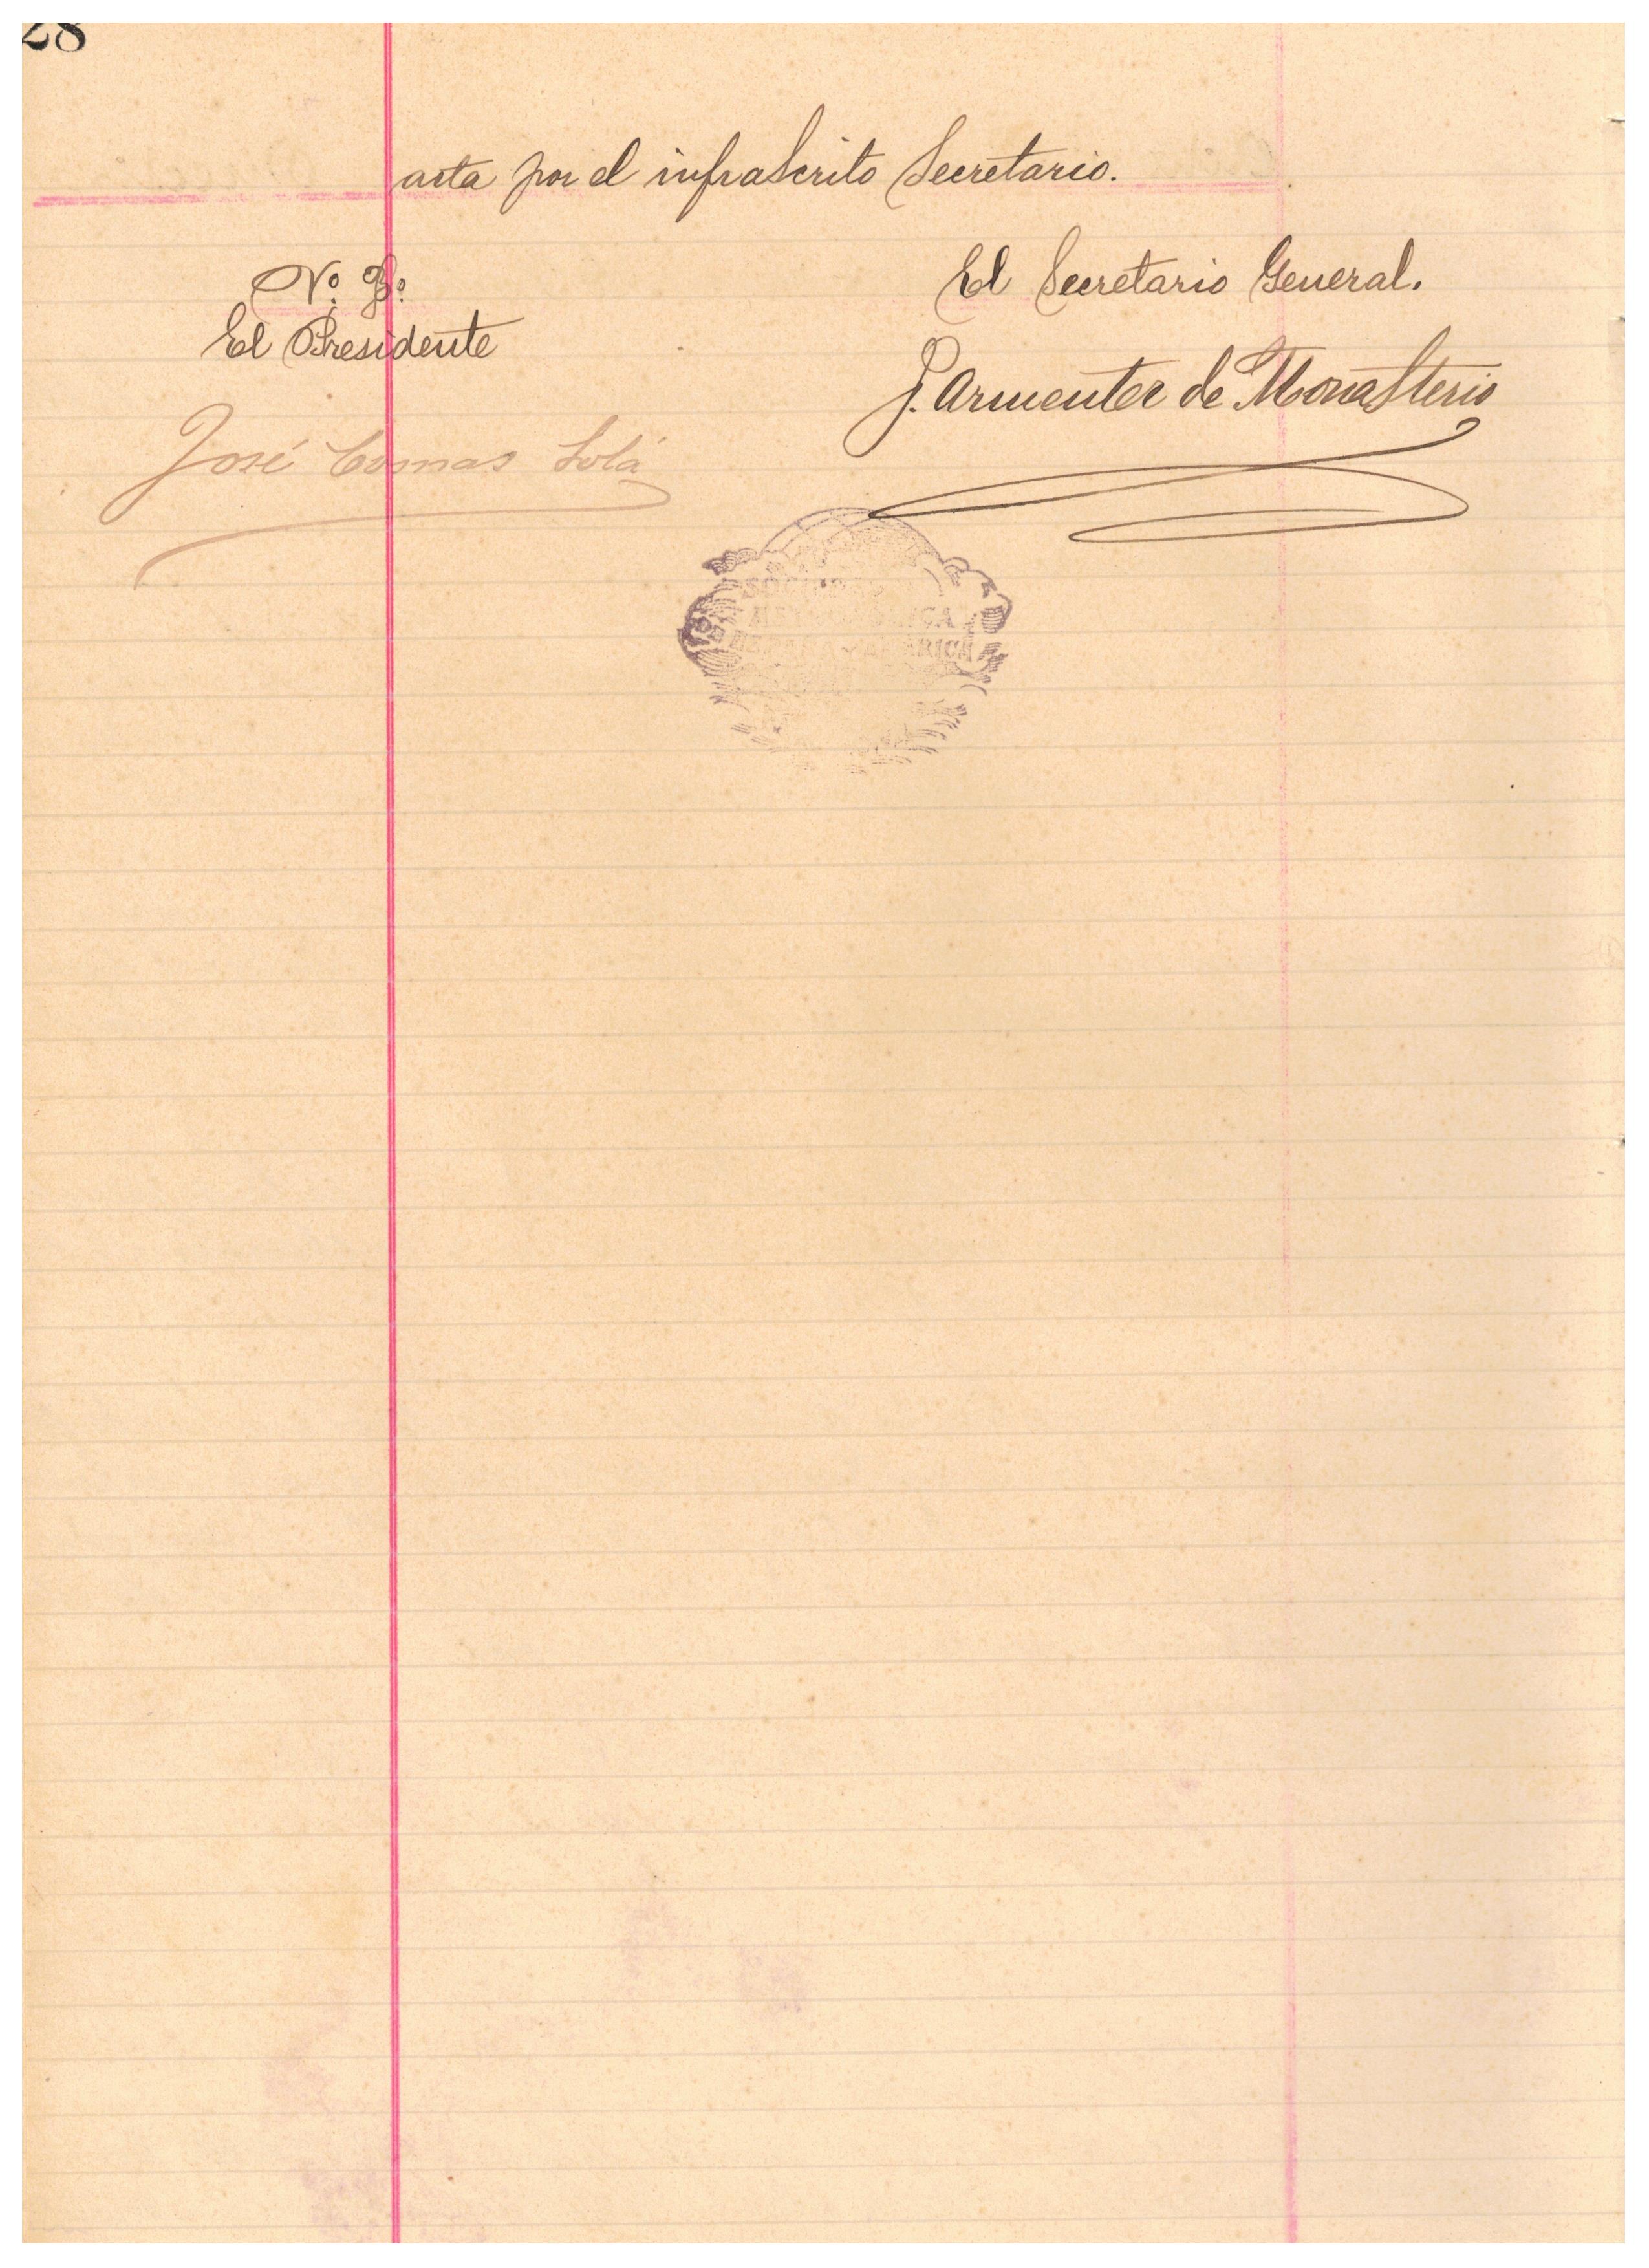 28
acta por el infrascrito Secretario.
El Secretario General.
Vº Bº
El Presidente
J. Armenter de Monasterio
José Comas Solá
SOCIEDAD
ESPAÑA Y AMERICA